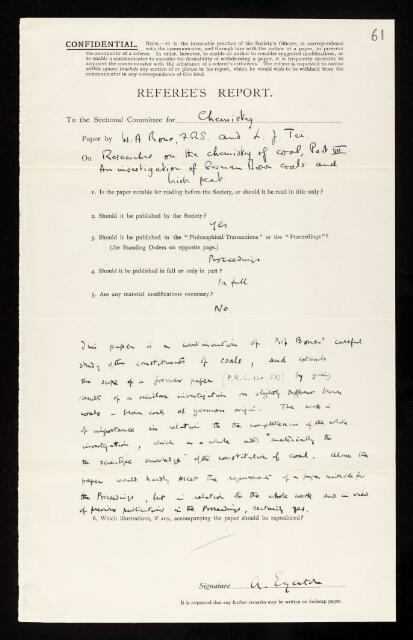 61
CONFIDENTIAL. NOTE.—It is the invariable practice of the Society's Officers, in correspondence
with the communicator, and through him with the author of a paper, to preserve
the anonymity of a referee. In order, however, to enable an author to consider suggested modifications, or
to enable a communicator to consider the desirability of withdrawing a paper, it is frequently desirable to
acquaint the communicator with the substance of a referee's criticisms. The referee is requested to enclose
within square brackets any section of or phrase in his report, which he would wish to be withheld from the
communicator in any correspondence of this kind.
REFEREE'S REPORT.
To the Sectional Committee for Chemistry
Paper by W. A. Bone, F.R.S. and L. J. Tei
On Researches on the chemistry of coal, Part VII
An investigation of German Brown coals and
Irish peat.
1. Is the paper suitable for reading before the Society, or should it be read in title only?
2. Should it be published by the Society?
Yes
3. Should it be published in the "Philosophical Transactions" or the "Proceedings"?
(See Standing Orders on opposite page.)
Proceedings
4. Should it be published in full or only in part?
In full
5. Are any material modifications necessary?
No
This paper is a continuation of Prof Bone's careful
study of the constituents of coals, and extends
the scope of a former paper (P.R.S. 120, 523) by giving
results of a similar investigation on slightly different brown
coals – brown coals of german origin. The work is
of importance in relation to the completeness of the whole
investigation, which as a whole adds "materially to
the scientific knowledge" of the constitution of coal. Alone the
paper would hardly meet the requirement of a paper suitable for
the Proceedings, but in relation to the whole work and in view
of previous publications in the Proceedings, certainly yes.
6. Which illustrations, if any, accompanying the paper should be reproduced?
Signature A. Egerton
It is requested that any further remarks may be written on foolscap paper.